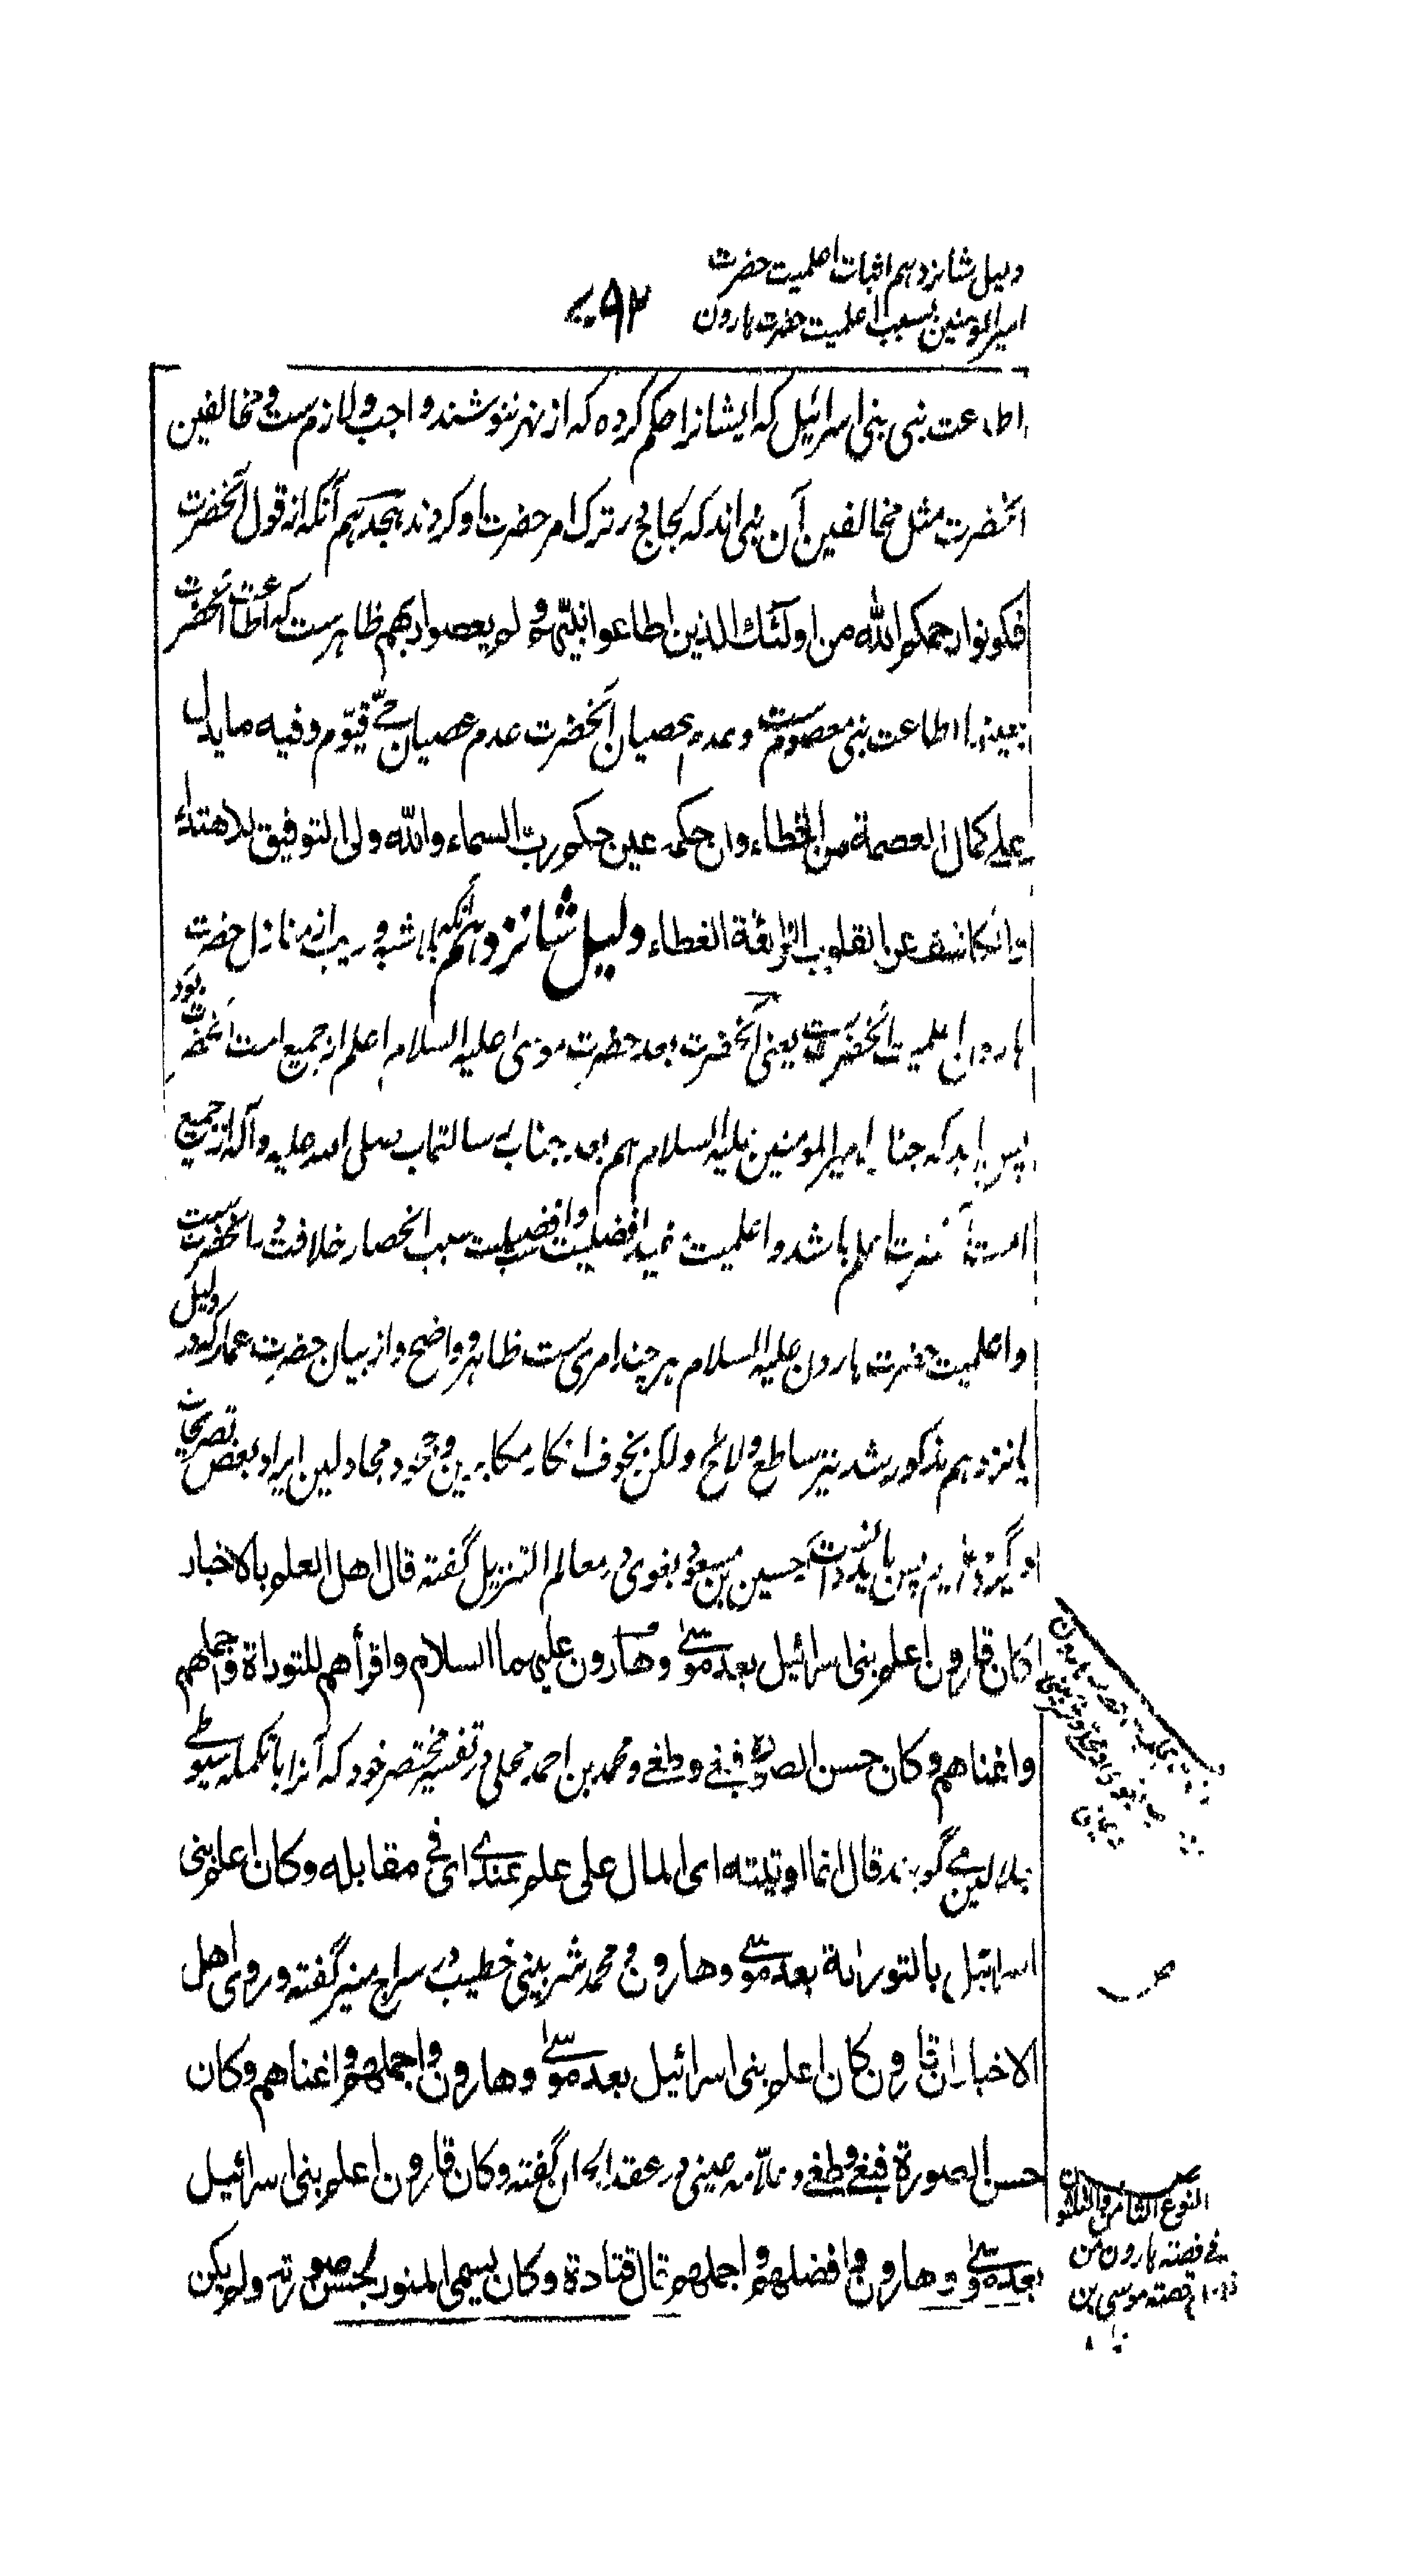 دلیل شانزدهم اثبات اعلمیت حضرت
امیرالمومنین بسبب اعلمیت حضرت هارون
۷۹۲
اطاعت نبی بنی اسرائیل که ایشانرا حکم کرده که از نهر ننوشند واجب و لازم ست و مخالفین
آنحضرت مثل مخالفین آن نبی اند که بجا لج در ترک امر حضرت او کردند هجدهم آنکه از قول آنحضرت
فکونوا رحمکم الله من اولئک الذین اطاعوا نبیّهم و لم یعصوا ربهم ظاهرست که اطاعت آنحضرت
بعینها اطاعت نبی معصوم ست و عدم عصیان آنحضرت عدم عصیان حیّ قیّوم و فیه ما یدل
علی کمال العصمة من الخطاء وان حکمه عین حکم رب السماء والله ولی التوفیق للاهتداء
و الکاشف عن القلوب الزائغة الغطاء دلیل شانزدهم آنکه بلا شبه و ریب از منازل حضرت
هارون اعلمیت آنحضرت ست یعنی آنحضرت بعد حضرت موسی علیه السلام اعلم از جمیع امت آنحضرت بود
پس باید که جناب امیرالمومنین علیه السلام هم بعد جناب رسالتماب صلی الله علیه و آله از جمیع
امت آنحضرت اعلم باشد و اعلمیت مفید افضلیت و افضلیت سبب انحصار خلافت در آنحضرت ست
و اعلمیت حضرت هارون علیه السلام هر چند امری ست ظاهر و واضح و از بیان حضرت عمار که در دلیل
پانزدهم مذکور شد نیز ساطع و لائح ولکن بخوف انکار مکابرین و جحود مجادلین ایراد بعض تصریحات
دیگر داریم پس باید دانست که حسین بن مسعود بغوی در معالم التنزیل گفته قال اهل العلم بالاخبار
کان قارون اعلم بنی اسرائیل بعد موسی وهارون علیهما السلام واقرأهم للتوراة واجملهم
واغناهم وکان حسن الصوت فبغی وطغی و محمد بن احمد محلی در تفسیر مختصر خود که آنرا با تکمله سیوطی
جلالین می گویند قال انما اوتیته ای المال علی علم عندی ای فی مقابله وکان اعلم بنی
اسرائیل بالتوراة بعد موسی وهارون و محمد شربینی خطیب در سراج منیر گفته و روی اهل
الاخبار ان قارون کان اعلم بنی اسرائیل بعد موسی وهارون واجملهم واغناهم وکان
حسن الصورة فبغی وطغی و علّامه عینی در عقد الجمان گفته وکان قارون اعلم بنی اسرائیل
بعد موسی وهارون وافضلهم واجملهم قال قتادة وکان یسمی المنور لحسن صورته ولم یکن
النوع الثامن والثلثون
فی قصة هارون من
قصة موسی بن